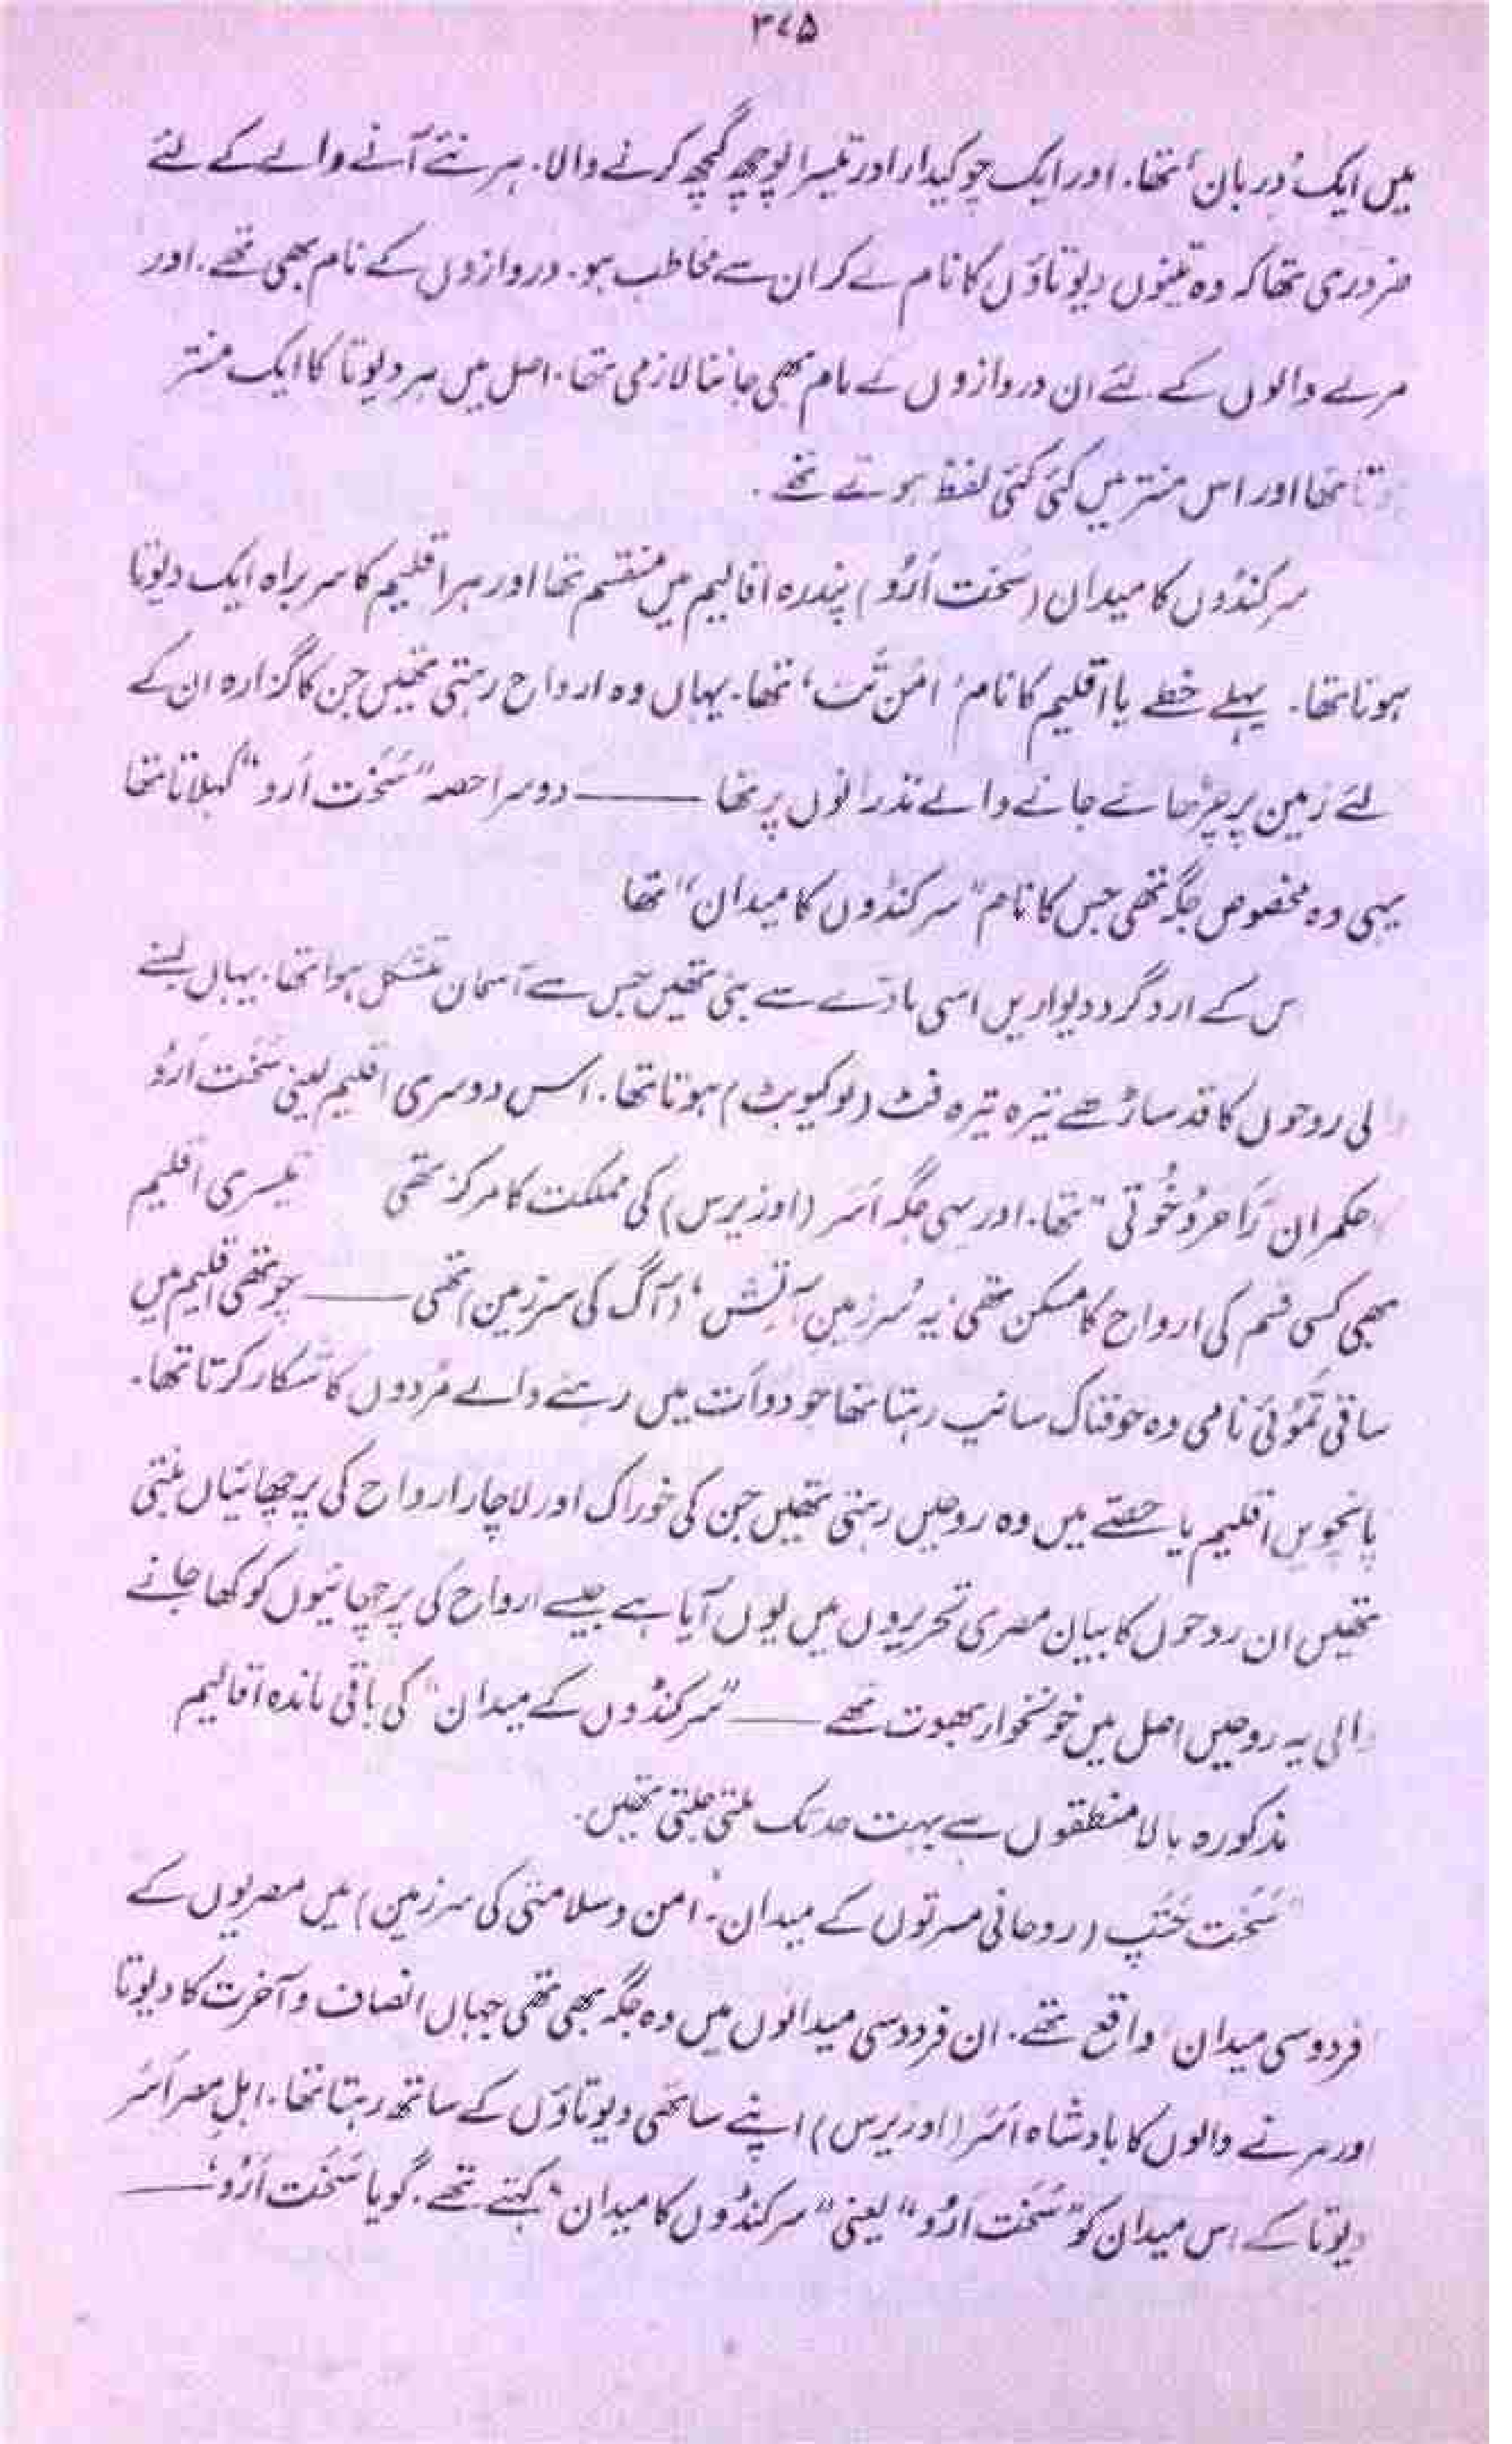 ۳۷۵
میں ایک ’دربان‘ تھا۔ اور ایک چوکیدار اور تیسرا پوچھ گچھ کرنے والا۔ ہر نئے آنے والے کے لئے
ضروری تھا کہ وہ تینوں دیوتاؤں کا نام لے کر ان سے مخاطب ہو۔ دروازوں کے نام بھی تھے۔ اور
مرنے والوں کے لئے ان دروازوں کے نام بھی جاننا لازمی تھا۔ اصل میں ہر دیوتا کا ایک منتر
ہوتا تھا اور اس منتر میں کئی کئی لفظ ہوتے تھے۔
سرکنڈوں کا میدان (سَخت اَرُو) پندرہ اقالیم میں منقسم تھا اور ہر اقلیم کا سربراہ ایک دیوتا
ہوتا تھا۔ پہلے خطے یا اقلیم کا نام ’امَن تَت‘ تھا۔ یہاں وہ ارواح رہتی تھیں جن کا گزارہ ان کے
لئے زمین پر چڑھائے جانے والے نذرانوں پر تھا —— دوسرا حصہ “سَخَت اَرو“ کہلاتا تھا
یہی وہ مخصوص جگہ تھی جس کا نام “سرکنڈوں کا میدان“ تھا
س کے ارد گرد دیواریں اسی مادّے سے بنی تھیں جس سے آسمان متشکل ہوا تھا۔ یہاں بسنے
لی روحوں کا قد ساڑھے تیرہ تیرہ فٹ (نو کیوبٹ) ہوتا تھا۔ اس دوسری اقلیم یعنی سَخَت اَرُو
حکمران “رَا حَرُوخُوتی“ تھا۔ اور یہی جگہ اَسَر (اوزیرس) کی مملکت کا مرکز تھی تیسری اقلیم
بھی کسی قسم کی ارواح کا مسکن تھی یہ ’سرزمینِ آتش‘ (آگ کی سرزمین) تھی —— چوتھی اقلیم میں
ساتی تَمُوئی نامی وہ خوفناک سانپ رہتا تھا جو دواَت میں رہنے والے مُردوں کا شکار کرتا تھا۔
پانچویں اقلیم یا حصّے میں وہ روحیں رہتی تھیں جن کی خوراک اور لاچار ارواح کی پرچھائیاں بنتی
تھیں ان روحوں کا بیان مصری تحریروں میں یوں آیا ہے جیسے ارواح کی پرچھائیوں کو کھا جانے
والی یہ روحیں اصل میں خونخوار بھوت تھے —— “سرکنڈوں کے میدان“ کی باقی ماندہ اقالیم
مذکورہ بالا منطقوں سے بہت حد تک ملتی جلتی تھیں۔
“سَخَت حَتَپ (روحانی مسرتوں کے میدان۔ امن و سلامتی کی سرزمین) میں مصریوں کے
فردوسی میدان واقع تھے۔ ان فردوسی میدانوں میں وہ جگہ بھی تھی جہاں انصاف و آخرت کا دیوتا
اور مرنے والوں کا بادشاہ اَسَر (اوزیرس) اپنے ساتھی دیوتاؤں کے ساتھ رہتا تھا۔ اہلِ مصر اَسَر
دیوتا کے اس میدان کو “سَخَت اَرُو“ یعنی “سرکنڈوں کا میدان“ کہتے تھے۔ گویا سَخَت اَرُو‘ ——